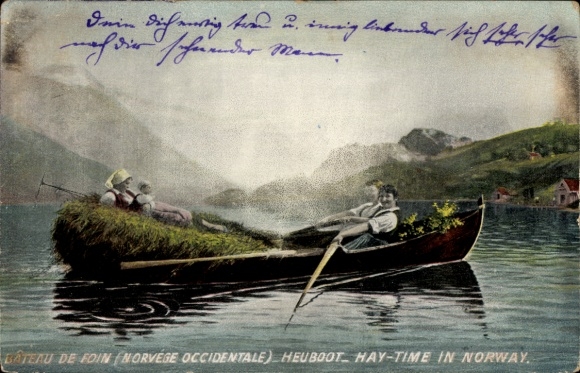 Dein dich ewig treu u. innig liebender sich sehr, sehr
nach dir sehnender Mann.
BÂTEAU DE FOIN (NORVÈGE OCCIDENTALE) HEUBOOT_ HAY-TIME IN NORWAY.